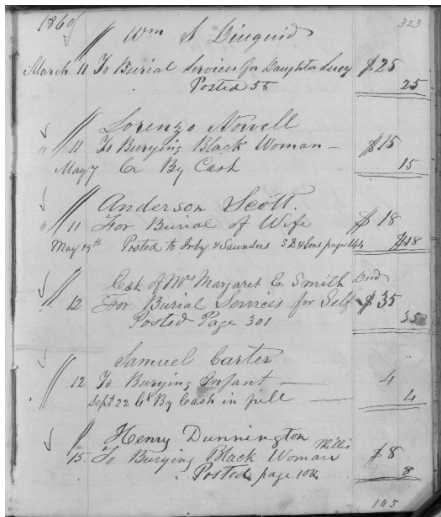 1860 323
Wm S Diuguid
March 11 To Burial Services for Daughter Lucy $25
Posted 55 25
Lorenzo Norvell
" 11 To Burying Black Woman — $15
May 7 Cr By Cash 15
Anderson Scott.
" 11 For Burial of Wife $18
May 19th Posted to Irby & Saunders S D & Sons page 144 $18
Est of Mrs Margaret E. Smith Decd
" 12 For Burial Services for Self $35
Posted Page 301 35
Samuel Carter
" 12 To Burying Infant — 4
Sept 22 Cr By Cash in full — 4
Henry Dunnington
" 15 To Burying Black Woman Millie $8
Posted page 102 8
105